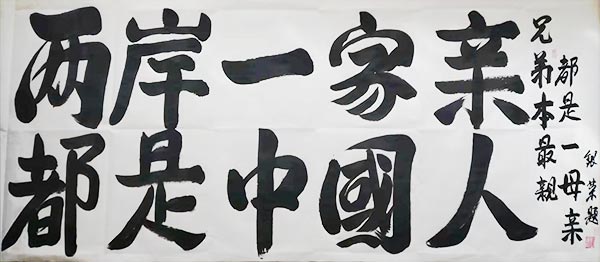 两岸一家亲
都是中國人
兄弟本最親
都是一母亲
银荣题